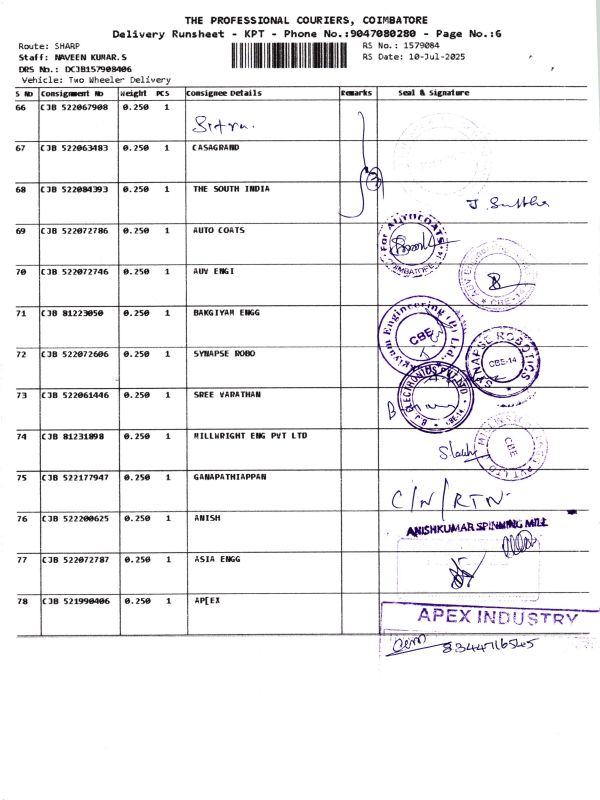 THE PROFESSIONAL COURIERS, COIMBATORE
Delivery Runsheet - KPT - Phone No.:9047080280 - Page No.:6
Route: SHARP RS No.: 1579084
Staff: NAVEEN KUMAR.S RS Date: 10-Jul-2025
DRS No.: DCJB157908406
Vehicle: Two Wheeler Delivery
S No Consignment No Weight PCS Consignee Details Remarks Seal & signature
66 CJB 522067908 0.250 1
67 CJB 522063483 0.250 1 CASAGRAND
68 CJB 522084393 0.250 1 THE SOUTH INDIA
69 CJB 522072786 0.250 1 AUTO COATS
For AUTOCOATS COIMBATORE-14
70 CJB 522072746 0.250 1 AUV ENGI
CBE-14
71 CJB 81223050 0.250 1 BAKGIYAM ENGG
Engineering (P) Ltd. CBE
72 CJB 522072606 0.250 1 SYNAPSE ROBO
SYNAPSE ROBOTICS CBE-14
73 CJB 522061446 0.250 1 SREE VARATHAN
74 CJB 81231898 0.250 1 MILLWRIGHT ENG PVT LTD
CBE
75 CJB 522177947 0.250 1 GANAPATHIAPPAN
C/N/RTN
76 CJB 522200625 0.250 1 ANISH
ANISHKUMAR SPINNING MILL
77 CJB 522072787 0.250 1 ASIA ENGG
78 CJB 521990406 0.250 1 AP[EX
APEX INDUSTRY